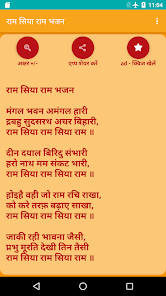 11:04
राम सिया राम भजन
अक्षर +/-
एप्प शेयर करें
ad - क्विज खेलें
राम सिया राम भजन
मंगल भवन अमंगल हारी
द्रबहु सुदसरथ अचर बिहारी,
राम सिया राम सिया राम ॥
दीन दयाल बिरिदु संभारी
हरो नाथ मम संकट भारी,
राम सिया राम सिया राम ॥
होइहै वही जो राम रचि राखा,
को करे तरफ़ बढ़ाए साखा,
राम सिया राम सिया राम ॥
जाकी रही भावना जैसी,
प्रभु मूरति देखी तिन तैसी
राम सिया राम सिया राम ॥